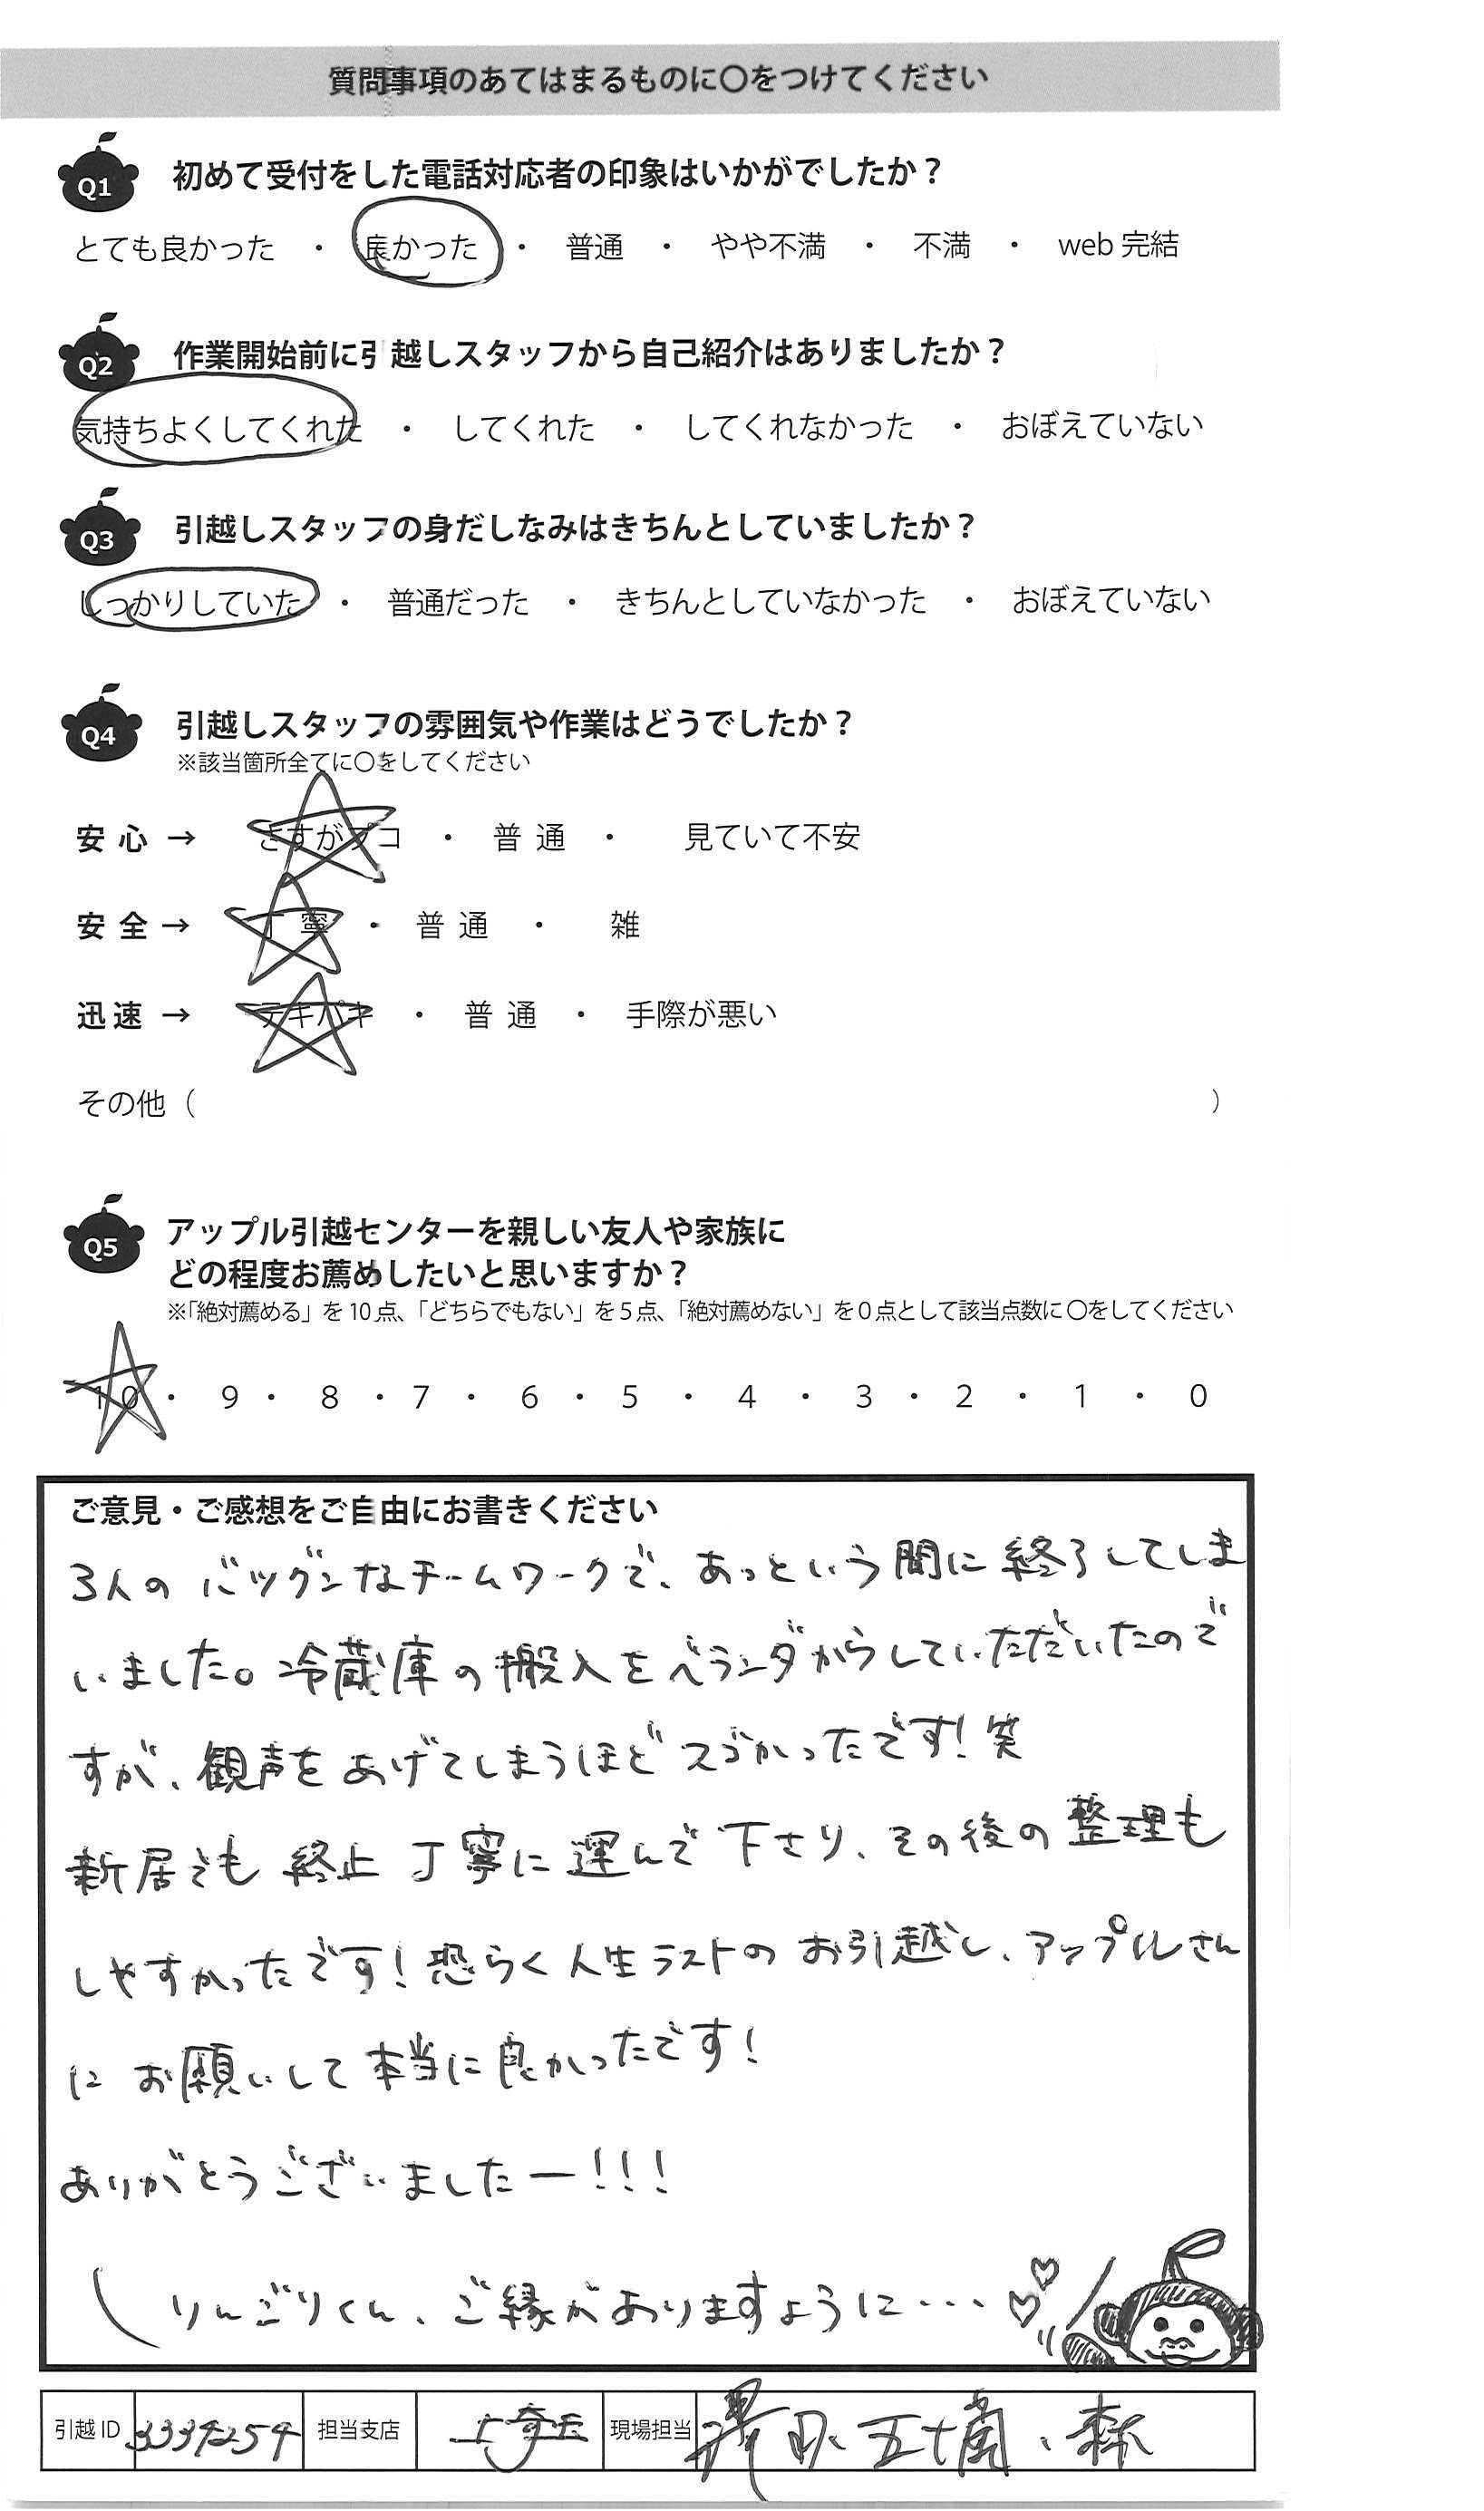 質問事項のあてはまるものに〇をつけてください
Q1 初めて受付をした電話対応者の印象はいかがでしたか？
とても良かった ・ 良かった ・ 普通 ・ やや不満 ・ 不満 ・ web 完結
Q2 作業開始前に引越しスタッフから自己紹介はありましたか？
気持ちよくしてくれた ・ してくれた ・ してくれなかった ・ おぼえていない
Q3 引越しスタッフの身だしなみはきちんとしていましたか？
しっかりしていた ・ 普通だった ・ きちんとしていなかった ・ おぼえていない
Q4 引越しスタッフの雰囲気や作業はどうでしたか？
※該当箇所全てに〇をしてください
安心 → さすがプロ ・ 普通 ・ 見ていて不安
安全 → 丁寧 ・ 普通 ・ 雑
迅速 → テキパキ ・ 普通 ・ 手際が悪い
その他（ ）
Q5 アップル引越センターを親しい友人や家族に
どの程度お薦めしたいと思いますか？
※「絶対薦める」を 10 点、「どちらでもない」を 5 点、「絶対薦めない」を 0 点として該当点数に 〇をしてください
10 ・ 9 ・ 8 ・ 7 ・ 6 ・ 5 ・ 4 ・ 3 ・ 2 ・ 1 ・ 0
ご意見・ご感想をご自由にお書きください
3人の バツグンなチームワークで、あっという間に終了してしま
いました。冷蔵庫の搬入をベランダからしていただいたので
すが、観声をあげてしまうほどスゴかったです！笑
新居でも 終止 丁寧に運んで下さり、その後の整理も
しやすかったです！恐らく人生ラストのお引越し、アップルさん
に お願いして本当に良かったです！
ありがとうございましたー！！！
りんごりくん、ご縁がありますように・・・♡♡
引越 ID 3334254 担当支店 埼玉 現場担当 澤田、五十嵐、森